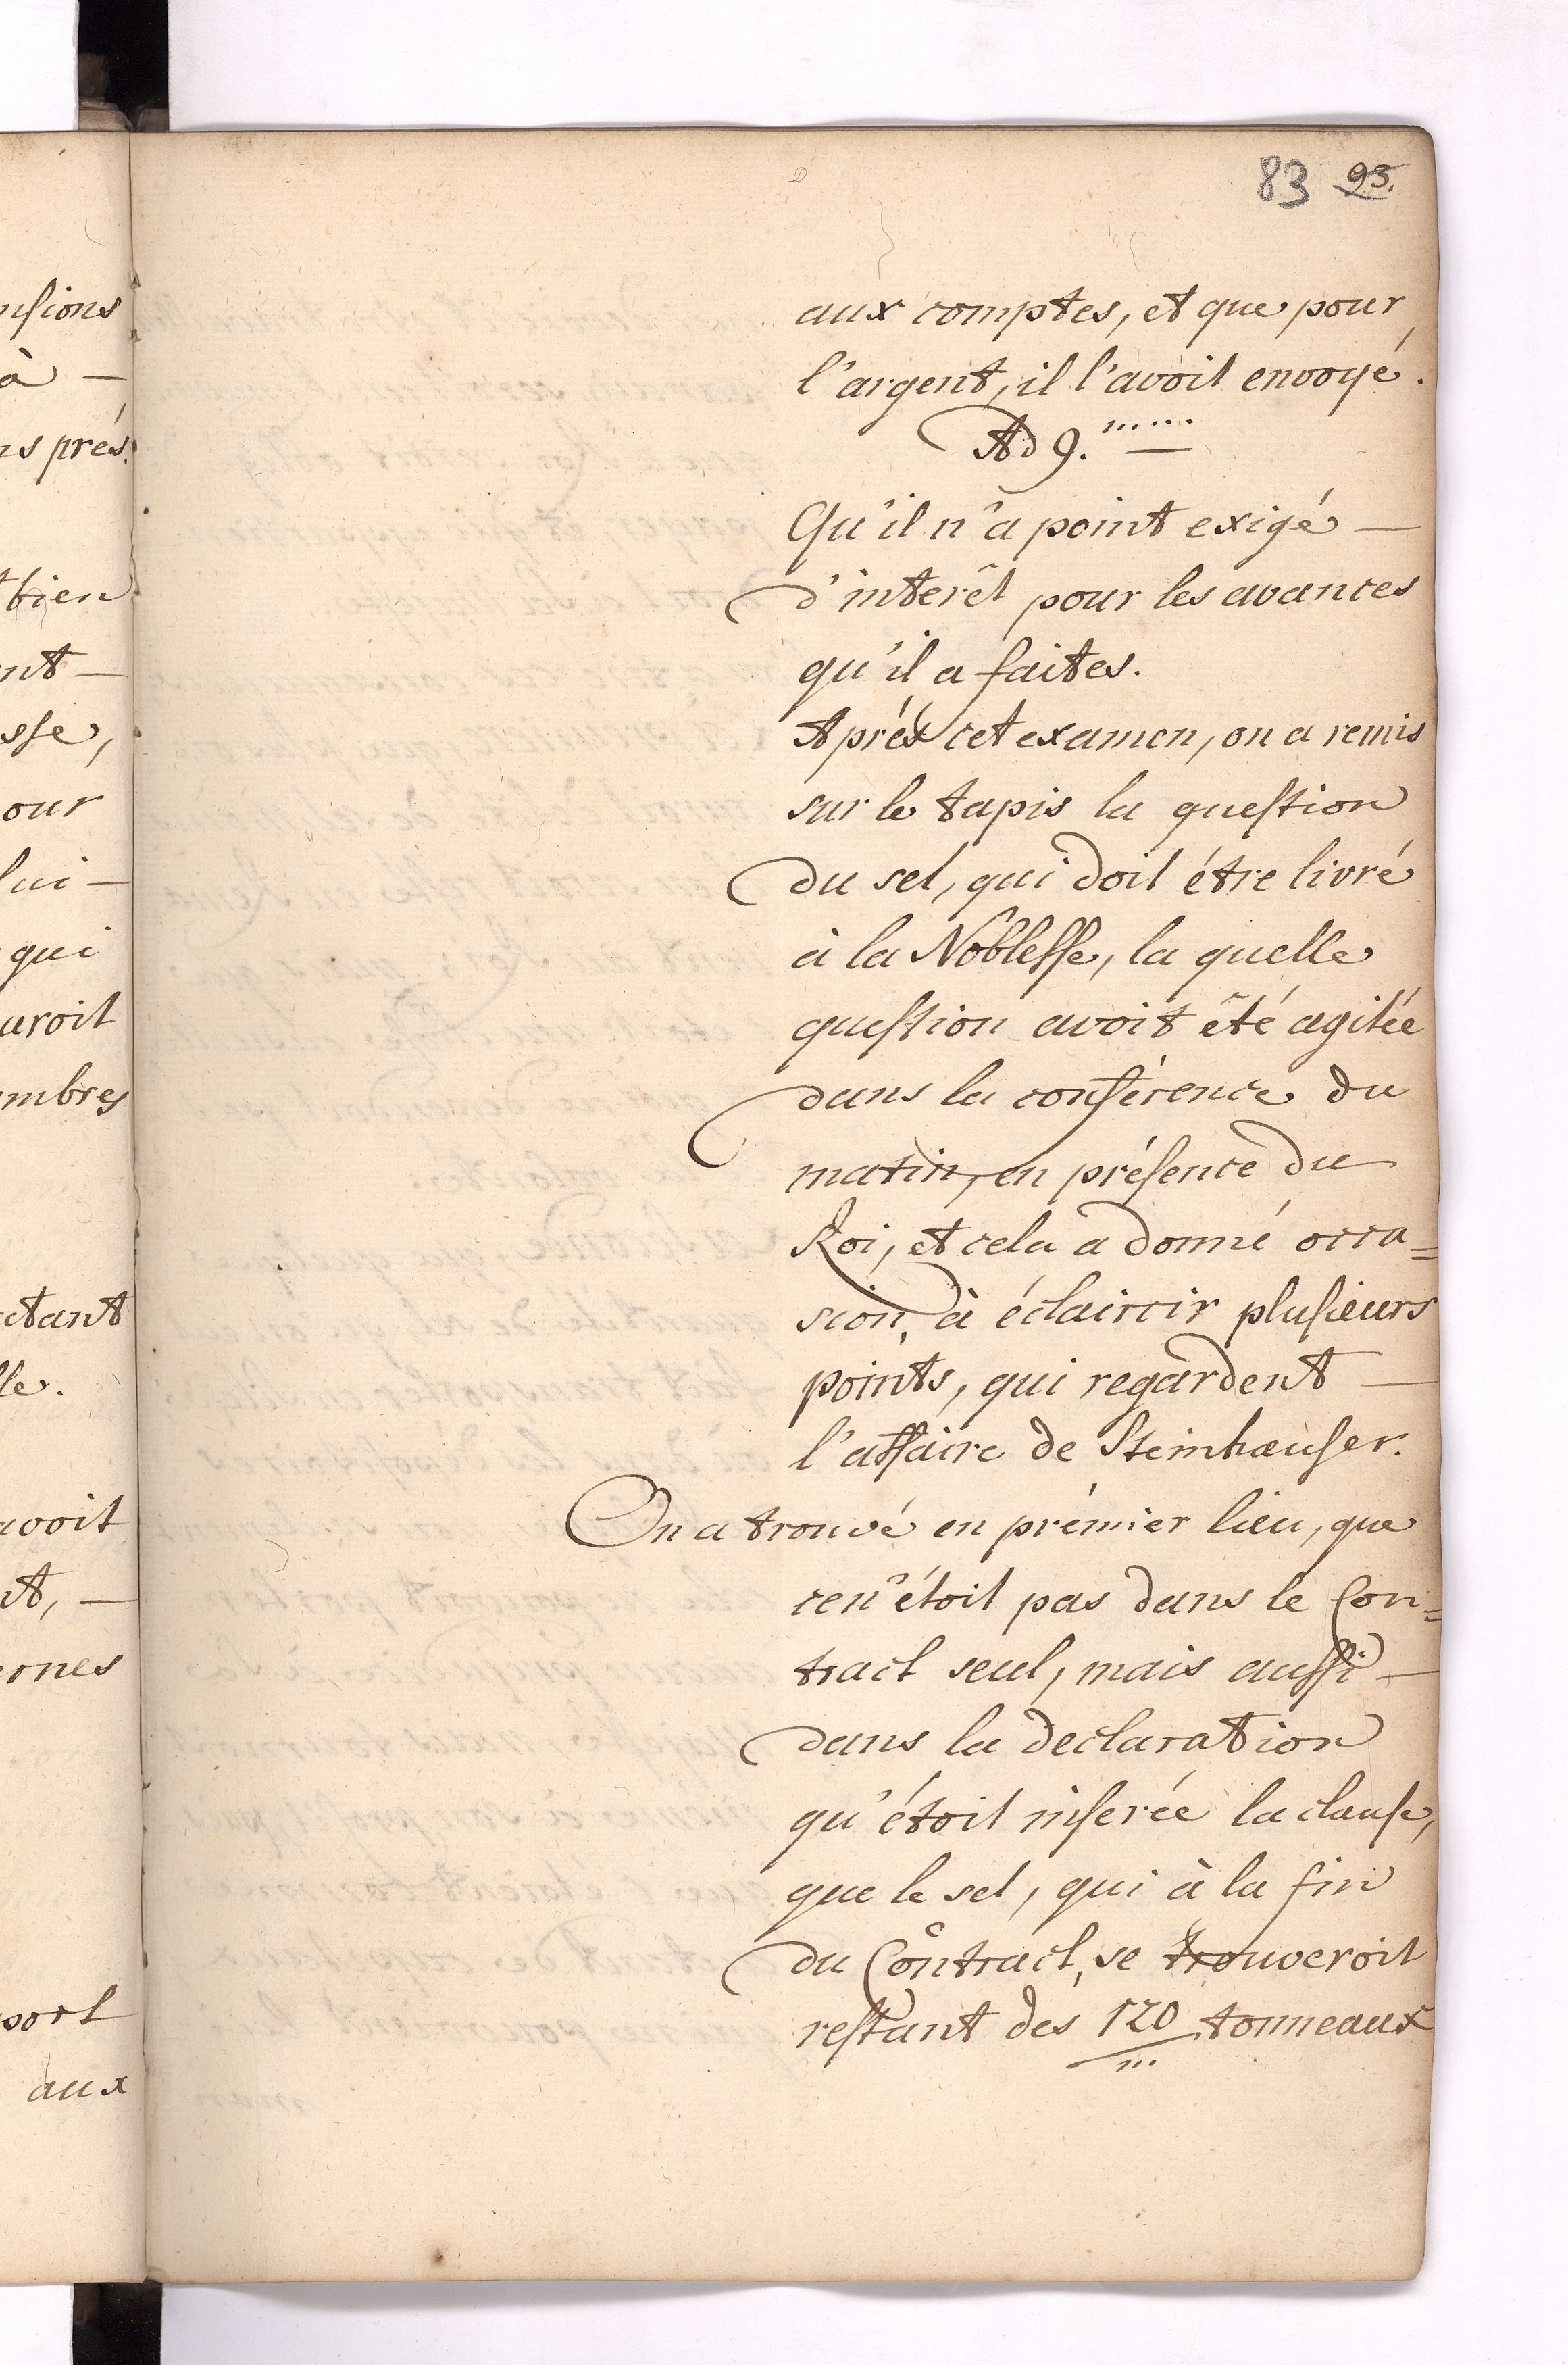 nsions
à —
ns prés.
t bien
nt —
sse,
our
lui —
qui
uroit
mbres
ctant
lle.
avoit
nt, —
ernes
port
aux
83 93.
aux comptes, et que pour
l'argent, il l'avoit envoyé.
Ad 9.
Qu'il n'a point exigé —
d'interêt pour les avances
qu'il a faites.
Aprés cet examen, on a remis
sur le tapis la question
du sel, qui doit étre livré
à la Noblesse, la quelle
question avoit êté agitée
dans la conférence du
matin, en présence du
Roi, et cela a donné occa=
sion, à éclaircir plusieurs
points, qui regardent —
l'affaire de Steinhæuser.
On a trouvé en prémier lieu, que
ce n'étoit pas dans le Con=
tract seul, mais aussi —
dans la declaration
qu'étoit inserée la clause,
que le sel, qui à la fin
du Contract, se trouveroit
restant des 120 tonneaux